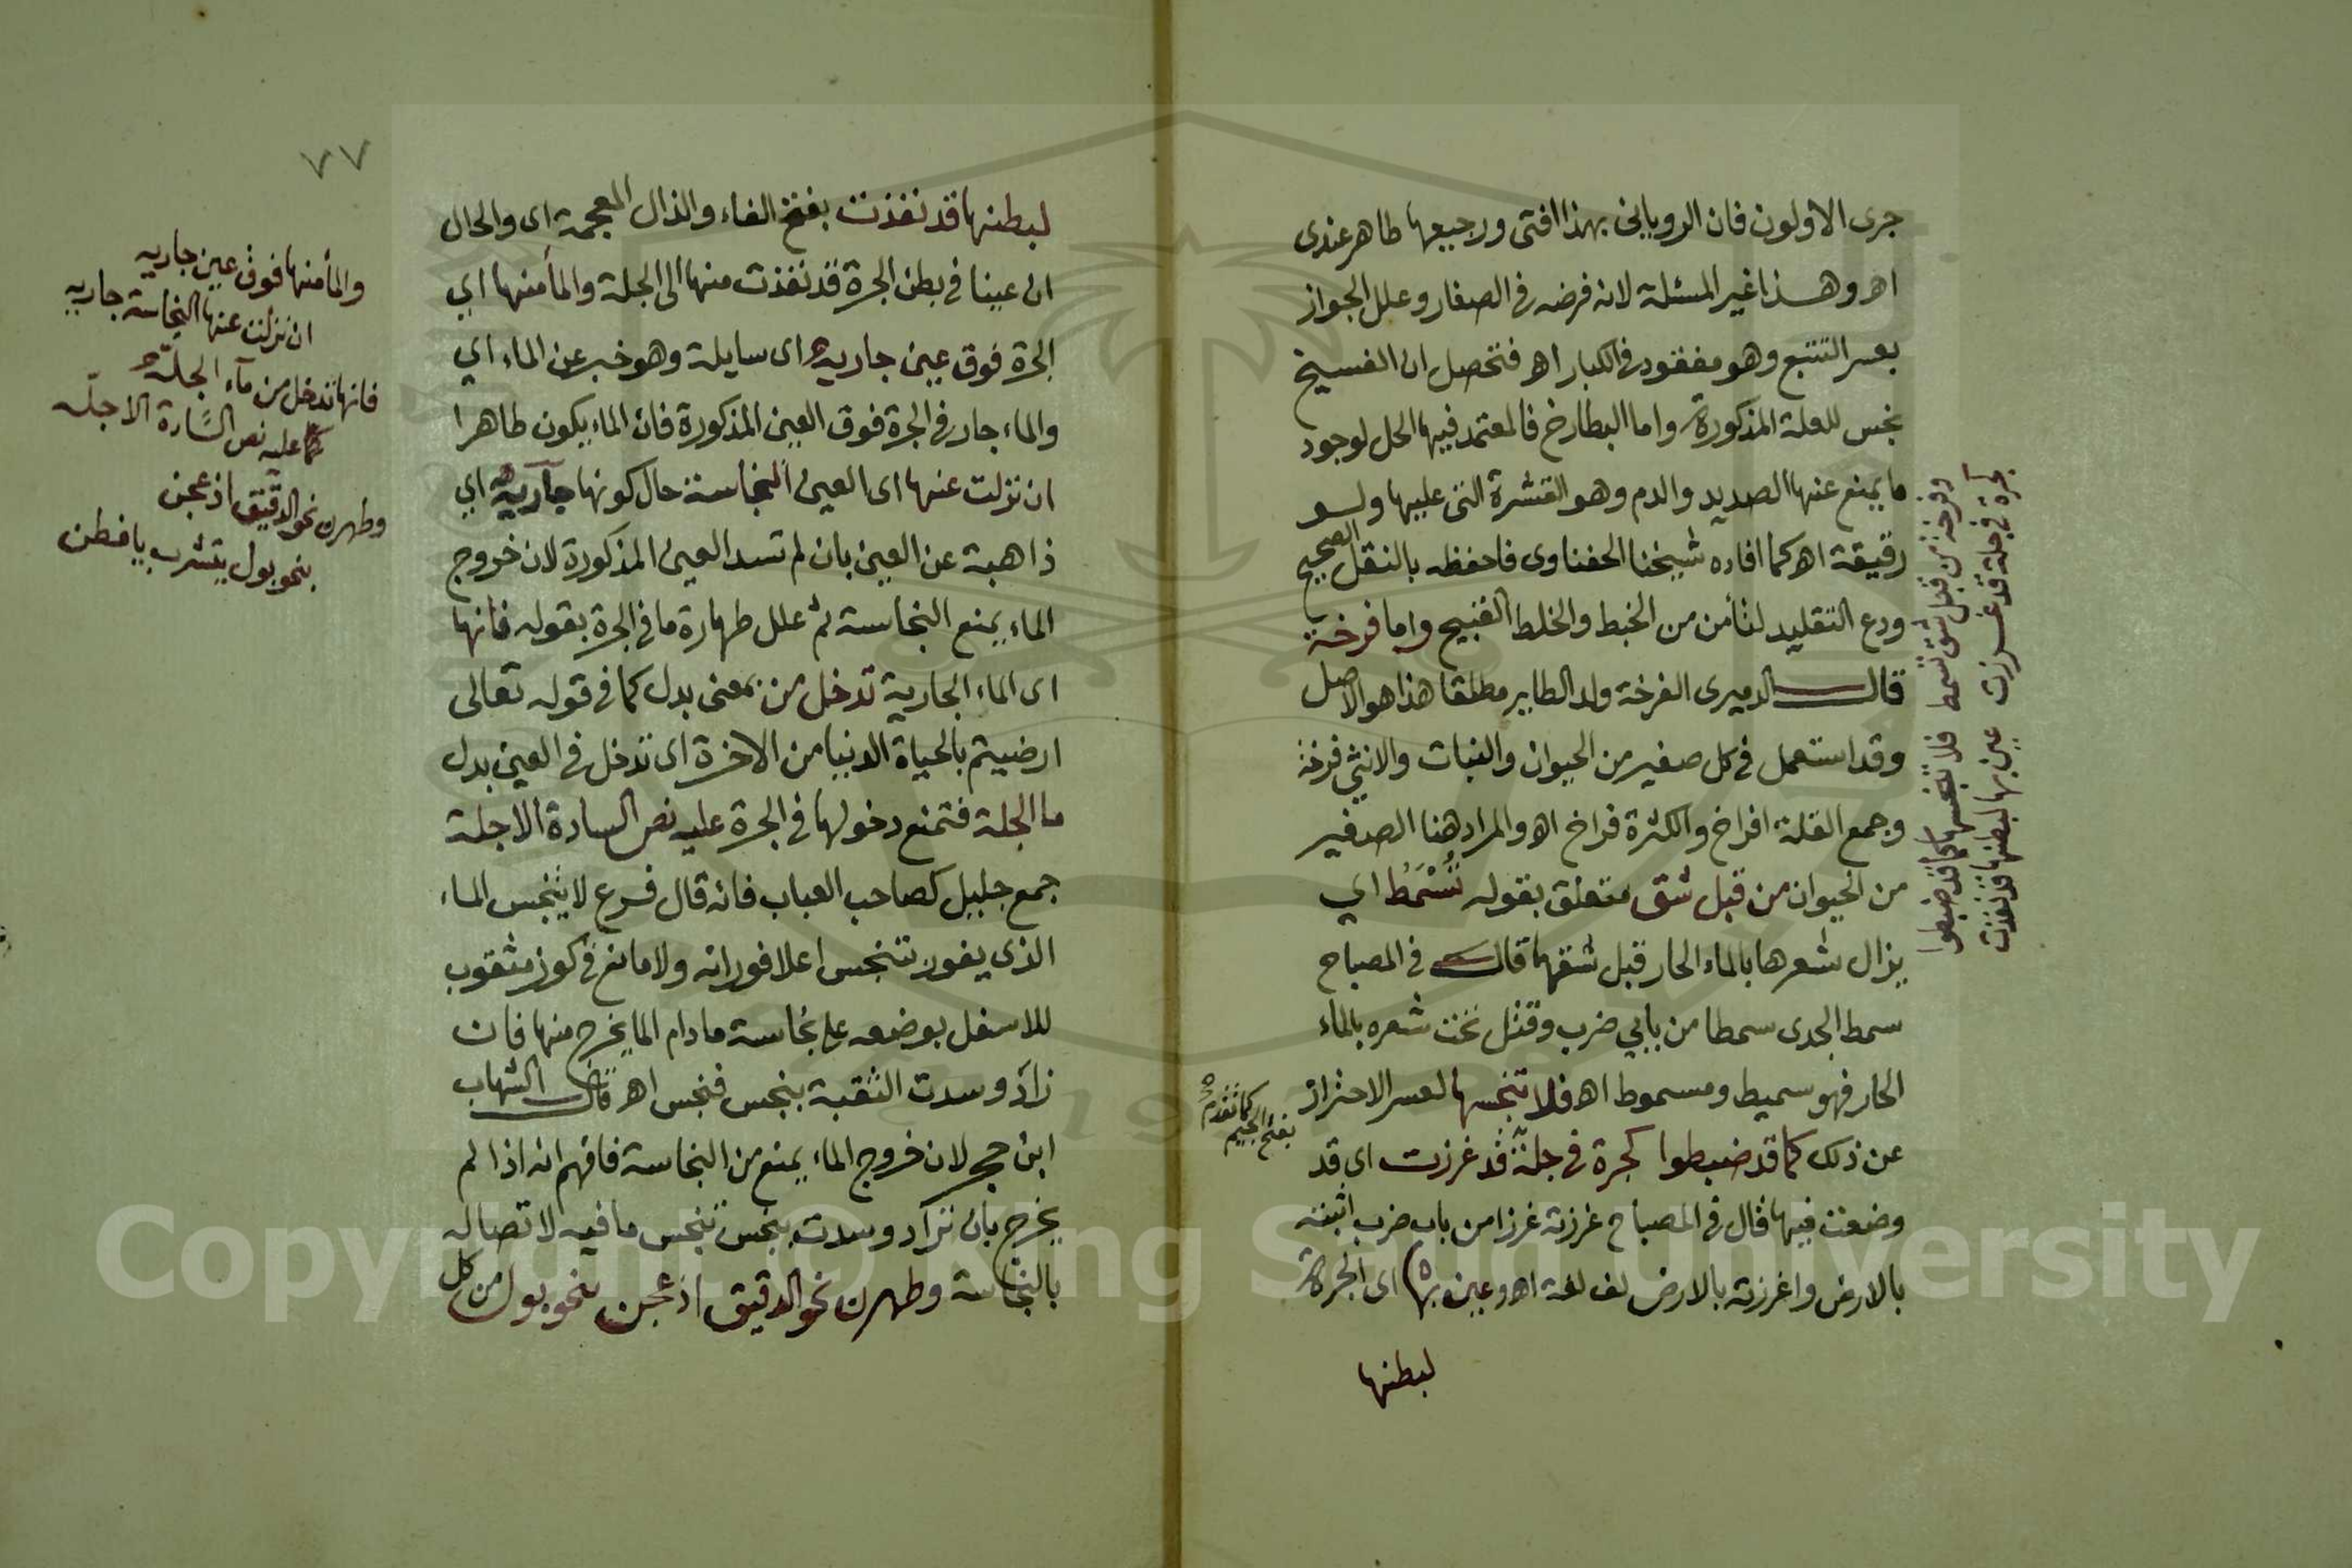 جرى الاولون فان الروياني بهذا افتى ورجيعها طاهر عندى
اه وهذا غير المسئلة لانه فرضه في الصغار وعلل الجواز
بعسر التتبع وهو مفقود في الكبار اه فتحصل ان الفسيخ
نجس للعلة المذكورة واما البطارخ فالمعتمد فيها الحل لوجود
ما يمنع عنها الصديد والدم وهو القشرة التى عليها ولو
رقيقة اه كما افاده شيخنا الحفناوى فاحفظه بالنقل الصحيح
ودع التقليد لتأمن من الخبط والخلط القبيح واما فرخة
قال الدميرى الفرخة ولد الطاير مطلقا هذا هو الاصل
وقد استعمل في كل صغير من الحيوان والنبات والانثى فرخة
وجمع القلة افراخ والكثرة فراخ اه والمراد هنا الصغير
من الحيوان من قبل شق متعلق بقوله تُسْمَطُ اي
يزال شعرها بالماء الحار قبل شقها قال في المصباح
سمط الجدى سمطا من بابي ضرب وقتل نحت شعره بالماء
الحار فهو سميط ومسموط اه فلا تنجسها لعسر الاحتراز
عن ذلك كما قد ضبطوا كجرة في جلة قد غرزت اى قد
وضعت فيها قال في المصباح غرزته غرزا من باب ضرب اثبته
بالارض واغرزته بالارض لف لغة اه وعين بها اى الجرة
لبطنها
وفرخة من قبل شق تسمط فلا تنجسها كما قد ضبطوا
كجرة في جلة قد غرزت عين بها لبطنها قد نفذت
كما تقدم
بفتح الجيم
٧٧
لبطنها قد نفذت بفتح الفاء والذال المعجمة اى والحال
ان عينا في بطن الجرة قد نفذت منها الى الجلة والمأ منها اي
الجرة فوق عين جاريه اى سايلة وهو خبر عن الماء اي
والماء جار في الجرة فوق العين المذكورة فان الماء يكون طاهرا
ان نزلت عنها اى العين النجاسة حال كونها جاريه اي
ذاهبة عن العين بان لم تسد العين المذكورة لان خروج
الماء يمنع النجاسة ثم علل طهارة ما في الجرة بقوله فانها
اى الماء الجارية تدخل من بمعنى بدل كما في قوله تعالى
ارضيتم بالحياة الدنيا من الاخرة اى تدخل في العين بدل
ما الجلة فتمنع دخولها في الجرة عليه نص السادة الاجلة
جمع جليل كصاحب العباب فانه قال فرع لا ينجس الماء
الذى يفور تنجس اعلا فورانه ولا مانع في كوز مثقوب
للاسفل بوضعه على نجاسة ما دام الما يخرج منها فان
زاد وسدت الثقبة بنجس فنجس اه قال الشهاب
ابن حجر لان خروج الماء يمنع من النجاسة فافهم انه اذا لم
يخرج بان تراد وسدت بنجس تنجس ما فيه لاتصاله
بالنجاسة وطهرن نحو الدقيق اذ عجن بنحو بول من كل
والمأ منها فوق عين جاريه
ان نزلت عنها النجاسة جاريه
فانها تدخل من مآء الجلة
كما عليه نص السَّادة الاجلّه
وطهرن نحو الدقيق اذ عجن
بنحو بول يتشرب يا فطن